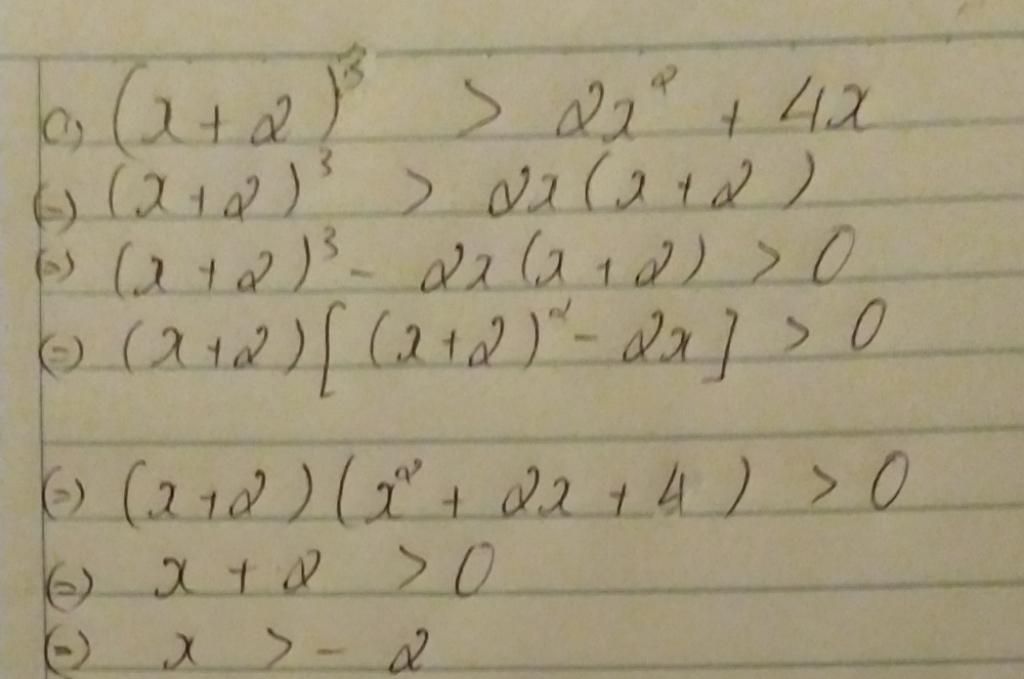 c) (x + 2)³ > 2x² + 4x
(=) (x + 2)³ > 2x(x + 2)
(=) (x + 2)³ - 2x(x + 2) > 0
(=) (x + 2)[(x + 2)² - 2x] > 0
(=) (x + 2)(x² + 2x + 4) > 0
(=) x + 2 > 0
(=) x > - 2